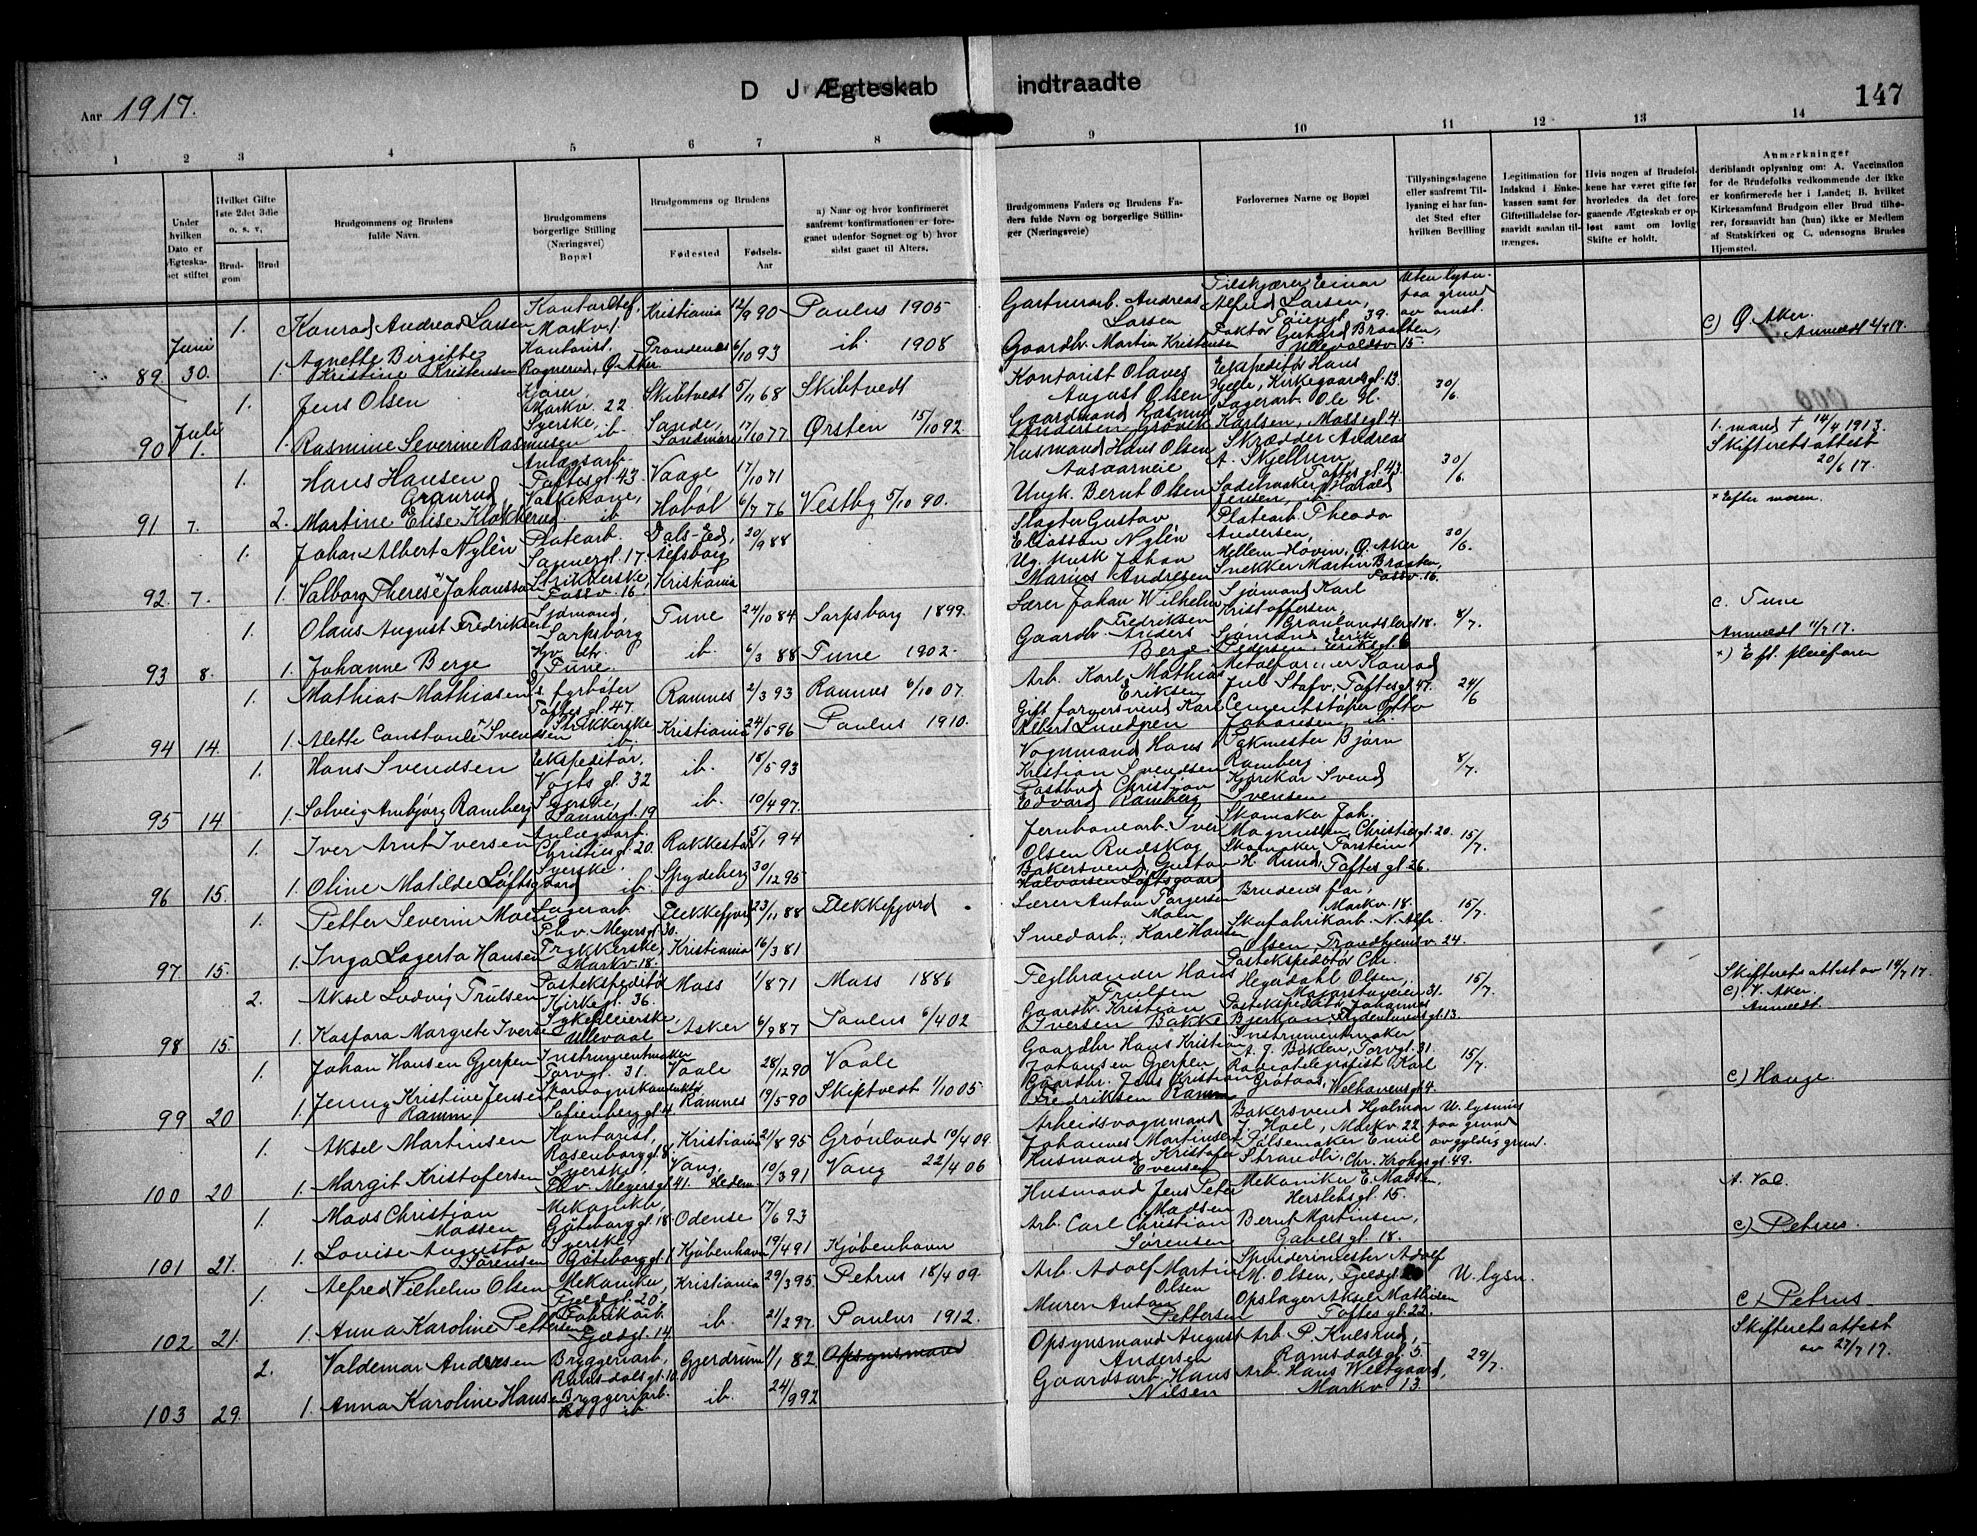 D J Ægteskab indtraadte
Aar 1917.
147
1 2 3 4 5 6 7 8 9 10 11 12 13 14
Under hvilken Dato er Ægteska-et stiftet
Hvilket Gifte 1ste 2det 3die o. s. v,
Brud-gom
Brud
Brudgommens og Brudens fulde Navn.
Brudgommens borgerlige Stilling (Næringsvei) Bopæl
Brudgommens og Brudens
Fødested
Fødsels-Aar
a) Naar og hvor konfirmeret saafremt konfirmationen er fore-gaaet udenfor Sognet og b) hvor sidst gaaet til Alters.
Brudgommens Faders og Brudens Fa-ders fulde Navn og borgerlige Stillin-ger (Næringsveie)
Forlovernes Navne og Bopæl
Tillysningsdagene eller saafremt Til-lysning ei har fun-det Sted efter hvilken Bevilling
Legitimation for Indskud i Enke-kassen samt for Giftetilladelse for-saavidt saadan til-trænges.
Hvis nogen af Brudefol-kene har været gifte før hvorledes da det fore-gaaende Ægteskab er op-løst samt om lovlig Skifte er holdt.
Anmerkninger
deriblandt oplysning om: A. Vaccination for de Brudefolks vedkommende der ikke er konfirmerede her i Landet; B. hvilket Kirkesamfund Brudgom eller Brud tilhø-rer, forsaavidt han (hun) ikke er Medlem af Statskirken og C. udensogns Brudes Hjemsted.
1. Konrad Andreas Larsen Markv. 1. Kristiania 12/9 90 Paulus 1905 Gartnerarb. Andreas Larsen Einar Alfred Larsen, Tøiengt. 39. Uten lysn. paa grund av omst.
89 Juni 30. 1. Agnette Birgitte Kristine Kristensen Kontorist, Ø. Aker Trondenes 6/10 93 ib. 1908 Gaardbr. Martin Kristensen Faktor Gerhard Braathen, Ullevoldsv. 15. C) Ø. Aker. Anmeldt 2/7 17.
1. Jens Olsen Kjører, Markv. 22 Skibtvedt 5/11 68 Skibtvedt Kontorist Olaves August Olsen Ekspeditør Hans Hjelle, Kirkegaardsgt. 13. 30/6.
90 Juli 1. 1. Rasmine Severine Rasmusen Syerske, ib. Sande, Søndmøre 17/10 77 Ørsten 15/10 92 Gaardmand Rasmus Andersen Grøvik Lagerarb. Ole H. Karlsen, Mossegt. 4. 1. mand † 14/4 1913. Skifteretsattest 20/6 17.
1. Hans Hansen Granrud Anlægsarb. Toftesgt. 43 Vaage 17/10 71 Husmand Hans Olsen Skrædder Andreas A. Skjellrum, Toftesgt. 43. 30/6.
91 7. 2. Martine Elise Klokkerud Vaskekone, ib. Hobøl 6/7 76 Vestby 5/10 90. Ungk. Bernt Olsen Sadelmaker Harald Jensen, ib. × Efter moren.
1. Johan Albert Nylén Platearb. Sannergt. 17. Dals-Ed, Elfsborg 20/9 88 Slagter Gustav Eliasson Nylén Platearb. Theodor Andersen, Mellem-Hovin, Ø. Aker 30/6.
92. 7. 1. Valborg Therese Johansson Strikkerske, Fossv. 16. Kristiania Johan Marius Andresen Snekker Martin Braaten, Fossv. 16.
1. Olaus August Fredriksen Sjømand, Sarpsborg Tune 24/10 84 Sarpsborg 1899. Lærer Johan Wilhelm Fredriksen Sjømand Karl Kristoffersen, Grønlandsleret 18. 8/7. C. Tune
93 8. 1. Johanne Berge Tune. ib. 6/3 88 Tune 1902. Gaardbr. Anders Berge Sjømand Erik Pedersen, Eriksgt. 6 Anmeldt 11/7 17.
1. Mathias Mathiasen fyrbøter Toftesgt. 47. Ramnes 2/3 93 Ramnes 6/10 07. Arb. Karl Mathias Eriksen Konrad Juul Stafv. Toftesgt. 47. 24/6 ×) Eft. pleiefaren
94 14. 1. Alette Constance Svendsen Strikkerske ib. Kristiania 24/5 96 Paulus 1910. Gift farversvend Karl Albert Lundgren Cementstøper Otto Johansen, ib.
1. Hans Svendsen Ekspeditør, Vogtsgt. 32 ib. 18/5 93 Vognmand Hans Kristian Svendsen Pakmester Bjørn Ramberg. 8/7.
95 14. 1. Solveig Ambjørg Ramberg Syerske, Sannergt. 19 ib. 10/4 97. Postbud Christian Edvard Ramberg Kjørekar Svend Svensen
1. Iver Arnt Iversen Anlægsarb. Christiesgt. 20. Rakkestad 5/1 94 Jernbanearb. Iver Olsen Rudskog Skomaker Joh. Magnussen, Christiesgt. 20. 15/7.
96 15. 1. Oline Matilde Løftsgaard Syerske. ib. Spydeberg 30/12 95 Bakersvend Gustav Halvorsen Løftsgaard Skomaker Torstein H. Rund, Toftesgt. 26.
1. Petter Severin Moen Lagerarb. Thv. Meyersgt. 30. Flekkefjord 23/11 88 Flekkefjord Lærer Anton Torgersen Moen Brudens far, Markv. 18. 15/7.
97 15. 1. Inga Lagerta Hansen Trykkerske, Markv. 18. Kristiania 16/3 81 Smedarb. Karl Hansen Skofabrikarb. N. Alfr. Olsen Trondhjemsv. 24.
2. Aksel Ludvig Trulsen Postekspeditør Kirkegt. 36. Moss 1/8 71 Moss 1886 Teglbrænder Hans Trulsen Postekspeditør Chr. Hegerdahl Olsen, Majorstuveien 31. 15/7. Skifteretsattest av 14/7 17.
98 15. 1. Kaspara Margrete Iversen Sykepleierske, Ullevaal Asker 6/9 87 Paulus 6/4 02 Gaardbr. Kristian Iversen Bakke Postekspeditør Johannes Bjerkan, Fredensborggt. 13. C). V. Aker. Anmeldt
1. Johan Hansen Gjerpen Instrumentmaker Torvgt. 31. Vaale 28/12 90 Vaale Gaardbr. Hans Kristian Johansen Gjerpen Instrumentmaker A. J. Baklen, Torvgt. 31. 15/7.
99 20 1. Jenny Kristine Jensen Ramm Sofienberggt. 4. Ramnes 19/5 90 Skiptvedt 1/10 05 Gaardbr. Jens Kristian Fredriksen Ramm Radiotelegrafist Karl Grøtaas, Welhavensgt. 4. C) Hauge.
1. Aksel Martinsen Kontorist, Rosenborggt. 8. Kristiania 21/8 95 Grønland 10/4 09. Arbeidsvognmand Johannes Martinsen Bakersvend Hjalmar J. Hoel, Markv. 22 U. lysning paa grund av gyldig grund.
100 20 1. Margit Kristofersen Syerske, Thv. Meyersgt. 41. Vang, Hedem. 10/3 91 Vang 22/4 06 Husmand Kristofer Evensen Pølsemaker Emil Strandli, Chr. Krohgsgt. 49.
1. Mads Christian Madsen Mekaniker, Gøteborggt. 18 Odense 7/6 93 Husmand Jens Peter Madsen Mekaniker E. Madsen, Herslebsgt. 15. A. Val.
101 21. 1. Lovise Augusta Sørensen Syerske, Gøteborggt. 1 Kjøbenhavn 19/4 91 Kjøbenhavn Arb. Carl Christian Sørensen Bernt Martinsen, Gabelsgt. 18. C) Petrus.
1. Alfred Vilhelm Olsen Mekaniker, Fjeldgt. 20. Kristiania 29/3 95. Petrus 18/4 09. Arb. Adolf Martin Olsen Adolf M. Olsen, Fjeldgt. U. lysn.
102 21. 1. Anna Karoline Pettersen Fabrikarb. Fjeldgt. 14. ib. 21/2 97. Paulus 1912. Murer Anton Pettersen Opslager Aksel Mathisen Toftesgt. 22. C) Petrus
2. Valdemar Andersen Bryggeriarb, Ramsdalsgt. 10. Gjerdrum 11/1 82. Opsynsmand Opsynsmand August Andersen Arb. P. Kulsrud, Ramsdalsgt. 5. 29/7. Skifteretsattest av 27/7 17.
103 29. 1. Anna Karoline Hansen Bryggeriarb. ib. ib. 24/9 92 Gaardsarb. Hans Nilsen Arb. Hans Westgaard, Markv. 13.